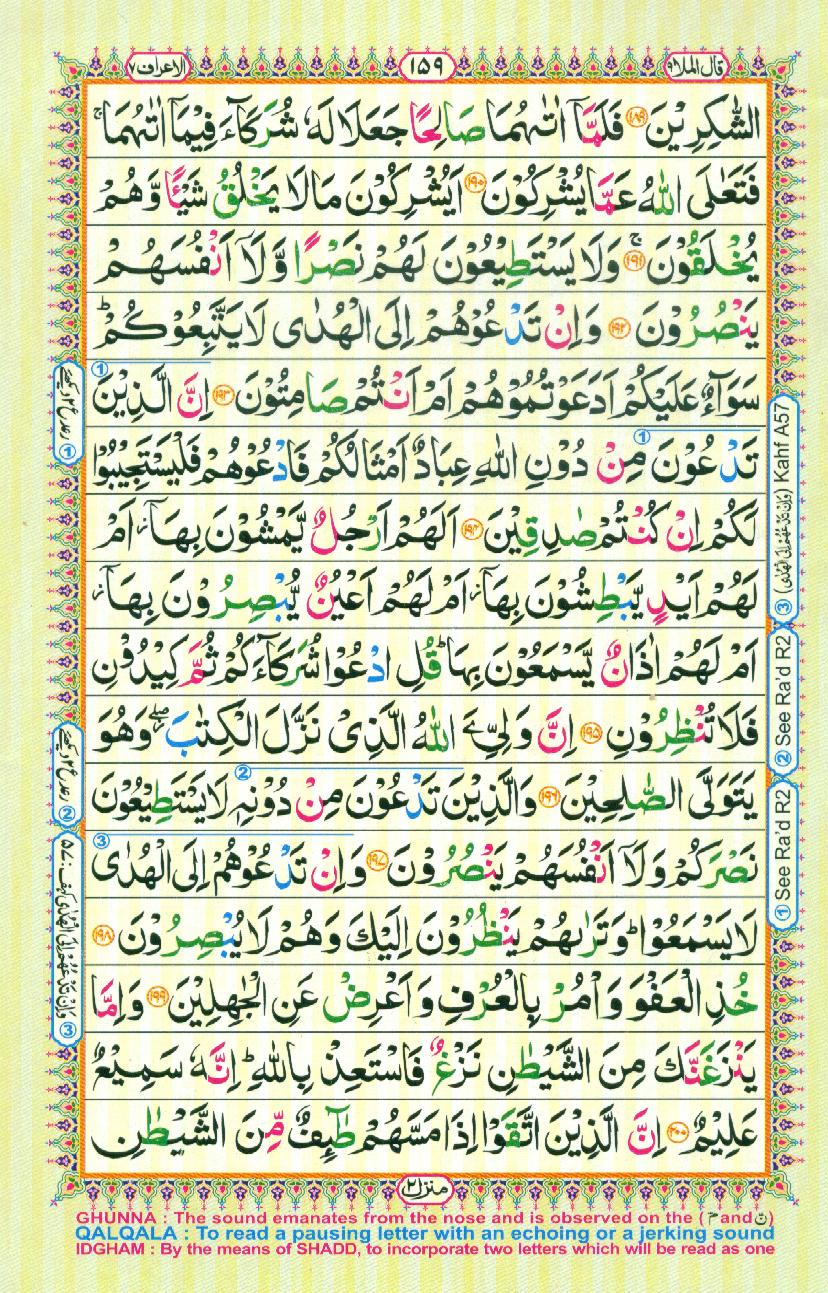 قال الملا ٩
١٥٩
الاعراف ٧
الشّٰكِرِيْنَ ﴿١٨٩﴾ فَلَمَّاۤ اٰتٰىهُمَا صَالِحًا جَعَلَا لَهٗ شُرَكَآءَ فِيْمَاۤ اٰتٰىهُمَا ۚ
فَتَعٰلَى اللّٰهُ عَمَّا يُشْرِكُوْنَ ﴿١٩٠﴾ اَيُشْرِكُوْنَ مَا لَا يَخْلُقُ شَيْـًٔا وَّهُمْ
يُخْلَقُوْنَ ۚ ﴿١٩١﴾ وَلَا يَسْتَطِيْعُوْنَ لَهُمْ نَصْرًا وَّلَاۤ اَنْفُسَهُمْ
يَنْصُرُوْنَ ﴿١٩٢﴾ وَاِنْ تَدْعُوْهُمْ اِلَى الْهُدٰى لَا يَتَّبِعُوْكُمْ ؕ
سَوَآءٌ عَلَيْكُمْ اَدَعَوْتُمُوْهُمْ اَمْ اَنْتُمْ صَامِتُوْنَ ﴿١٩٣﴾ اِنَّ الَّذِيْنَ ①
تَدْعُوْنَ مِنْ دُوْنِ اللّٰهِ عِبَادٌ اَمْثَالُكُمْ فَادْعُوْهُمْ فَلْيَسْتَجِيْبُوْا ①
لَكُمْ اِنْ كُنْتُمْ صٰدِقِيْنَ ﴿١٩٤﴾ اَلَهُمْ اَرْجُلٌ يَّمْشُوْنَ بِهَاۤ ؗ اَمْ
لَهُمْ اَيْدٍ يَّبْطِشُوْنَ بِهَاۤ ؗ اَمْ لَهُمْ اَعْيُنٌ يُّبْصِرُوْنَ بِهَاۤ ؗ
اَمْ لَهُمْ اٰذَانٌ يَّسْمَعُوْنَ بِهَا ؕ قُلِ ادْعُوْا شُرَكَآءَكُمْ ثُمَّ كِيْدُوْنِ
فَلَا تُنْظِرُوْنِ ﴿١٩٥﴾ اِنَّ وَلِيِّۦَ اللّٰهُ الَّذِيْ نَزَّلَ الْكِتٰبَ ۖ وَهُوَ
يَتَوَلَّى الصّٰلِحِيْنَ ﴿١٩٦﴾ وَالَّذِيْنَ تَدْعُوْنَ مِنْ دُوْنِهٖ لَا يَسْتَطِيْعُوْنَ ②
نَصْرَكُمْ وَلَاۤ اَنْفُسَهُمْ يَنْصُرُوْنَ ﴿١٩٧﴾ وَاِنْ تَدْعُوْهُمْ اِلَى الْهُدٰى ③
لَا يَسْمَعُوْا ؕ وَتَرٰىهُمْ يَنْظُرُوْنَ اِلَيْكَ وَهُمْ لَا يُبْصِرُوْنَ ﴿١٩٨﴾
خُذِ الْعَفْوَ وَاْمُرْ بِالْعُرْفِ وَاَعْرِضْ عَنِ الْجٰهِلِيْنَ ﴿١٩٩﴾ وَاِمَّا
يَنْزَغَنَّكَ مِنَ الشَّيْطٰنِ نَزْغٌ فَاسْتَعِذْ بِاللّٰهِ ؕ اِنَّهٗ سَمِيْعٌ
عَلِيْمٌ ﴿٢٠٠﴾ اِنَّ الَّذِيْنَ اتَّقَوْا اِذَا مَسَّهُمْ طٰٓئِفٌ مِّنَ الشَّيْطٰنِ
① See Ra'd R2
② See Ra'd R2
③ (وَاِنْ تَدْعُهُمْ اِلَى الْهُدٰى) Kahf A57
① رعد ع ٢ دیکھئے
② رعد ع ٢ دیکھئے
③ وَاِنْ تَدْعُهُمْ اِلَى الْهُدٰى کہف : ٥٧
منزل ٢
GHUNNA : The sound emanates from the nose and is observed on the ( مّ and نّ )
QALQALA : To read a pausing letter with an echoing or a jerking sound
IDGHAM : By the means of SHADD, to incorporate two letters which will be read as one